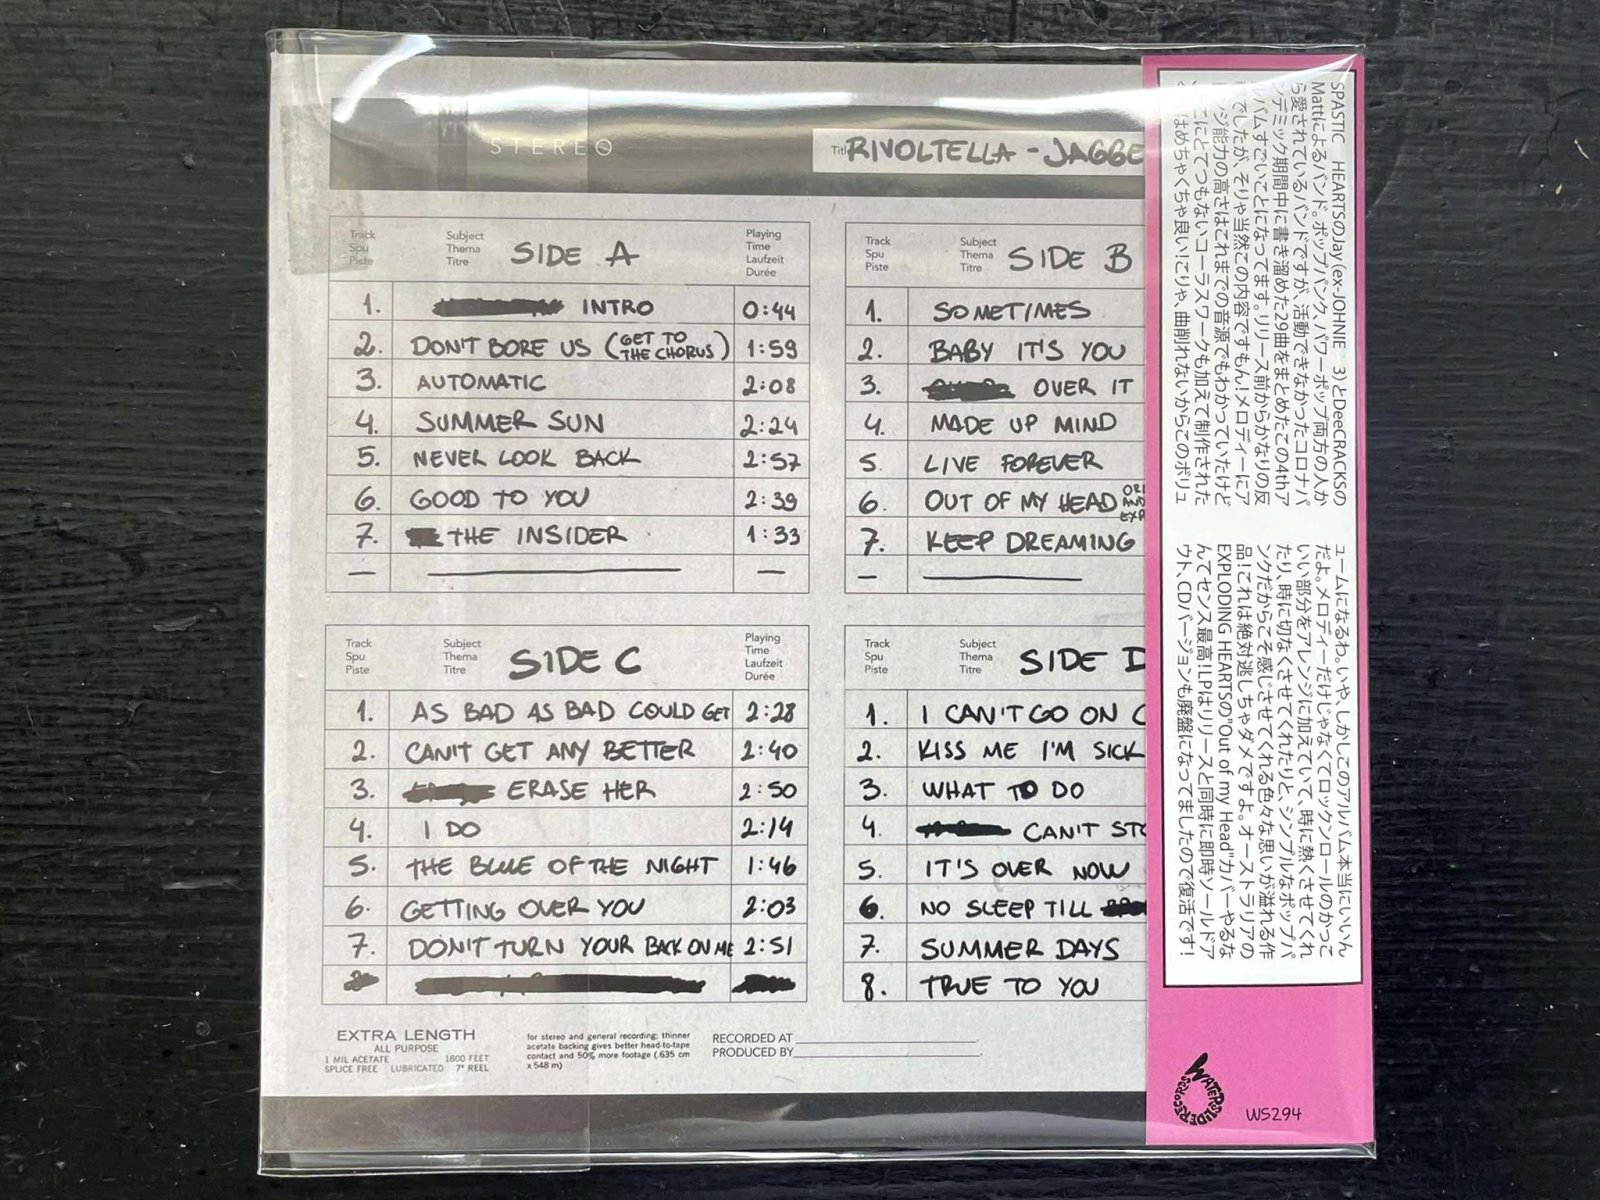 STEREO
Titl RIVOLTELLA - JAGGE
Track
Spu
Piste
Subject
Thema
Titre
SIDE A
Playing
Time
Laufzeit
Durée
1. INTRO 0:44
2. DON'T BORE US (GET TO THE CHORUS) 1:59
3. AUTOMATIC 2:08
4. SUMMER SUN 2:24
5. NEVER LOOK BACK 2:57
6. GOOD TO YOU 2:39
7. THE INSIDER 1:33
Track
Spu
Piste
Subject
Thema
Titre
SIDE B
1. SOMETIMES
2. BABY IT'S YOU
3. OVER IT
4. MADE UP MIND
5. LIVE FOREVER
6. OUT OF MY HEAD
7. KEEP DREAMING
Track
Spu
Piste
Subject
Thema
Titre
SIDE C
Playing
Time
Laufzeit
Durée
1. AS BAD AS BAD COULD GET 2:28
2. CAN'T GET ANY BETTER 2:40
3. ERASE HER 2:50
4. I DO 2:14
5. THE BLUE OF THE NIGHT 1:46
6. GETTING OVER YOU 2:03
7. DON'T TURN YOUR BACK ON ME 2:51
Track
Spu
Piste
Subject
Thema
Titre
SIDE D
1. I CAN'T GO ON
2. KISS ME I'M SICK
3. WHAT TO DO
4. CAN'T STO
5. IT'S OVER NOW
6. NO SLEEP TILL
7. SUMMER DAYS
8. TRUE TO YOU
EXTRA LENGTH
ALL PURPOSE
1 MIL ACETATE 1800 FEET
SPLICE FREE LUBRICATED 7" REEL
for stereo and general recording; thinner
acetate backing gives better head-to-tape
contact and 50% more footage (.635 cm
x 548 m)
RECORDED AT
PRODUCED BY
SPASTIC HEARTSのJay (ex-JOHNIE 3)とDeeCRACKSの
Mattによるバンド。ポップパンク、パワーポップ両方の人か
ら愛されているバンドですが、活動できなかったコロナパ
ンデミック期間中に書き溜めた29曲をまとめたこの4thア
ルバムすごいことになってます。リリース前からかなりの反
響でしたが、そりゃ当然この内容ですもん！メロディーにア
レンジ能力の高さはこれまでの音源でもわかっていたけど
そこにとてつもないコーラスワークも加えて制作された
はめちゃくちゃ良い！こりゃ、曲削れないからこのボリュ
ームになるわ。いや、しかしこのアルバム本当にいいん
だよ。メロディーだけじゃなくてロックンロールのかっこ
いい部分をアレンジに加えていて、時に熱くさせてくれ
たり、時に切なくさせてくれたりと、シンプルなポップパ
ンクだからこそ感じさせてくれる色々な思いが溢れる作
品！これは絶対逃しちゃダメですよ。オーストラリアの
EXPLODING HEARTSの"Out of my Head"カバーやるな
んてセンス最高！LPはリリースと同時に即時ソールドア
ウト、CDバージョンも廃盤になってましたので復活です！
WATERSLIDE RECORDS
WS294